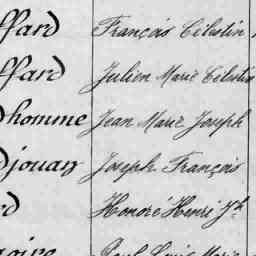 ffard François Célestin
ffard Julien Marie Célestin
dhomme Jean Marie Joseph
djouan Joseph François
rd Honoré Henri Jh
Paul Louis Marie